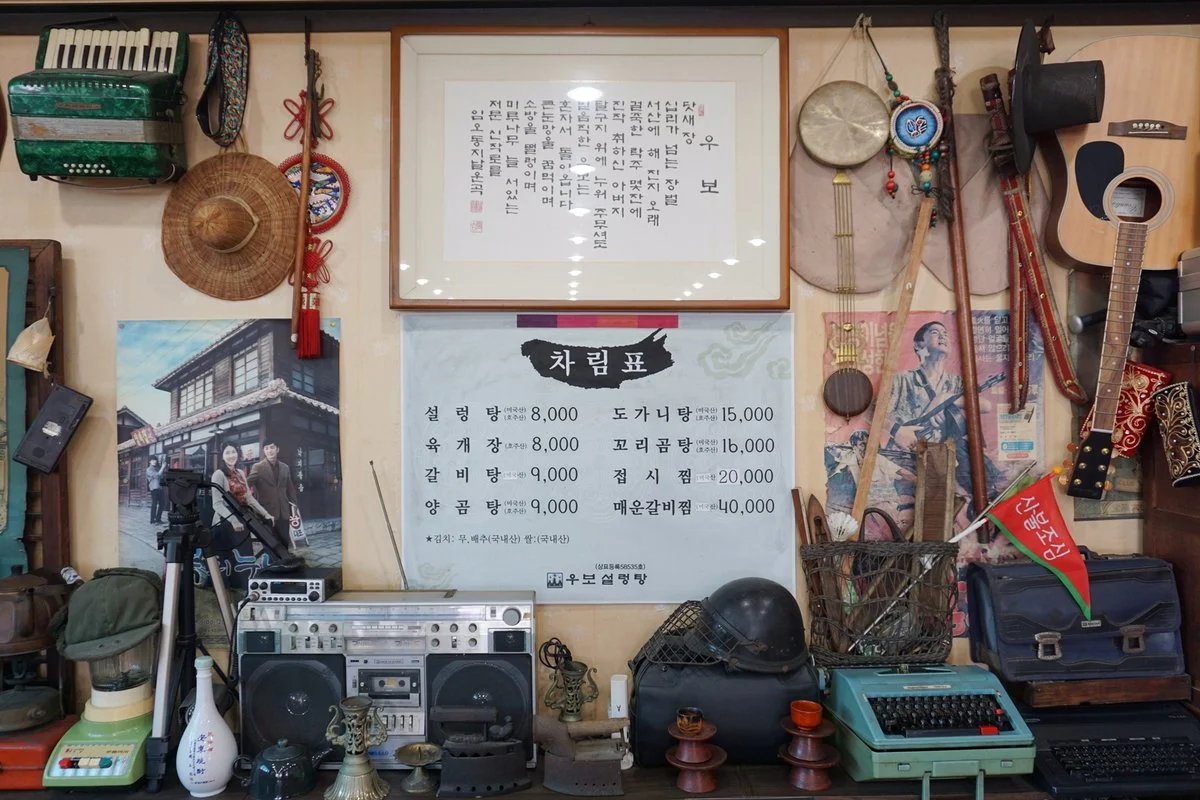 우보
닷새장
십리가 넘는 장벌
서산에 해 진지 오래
걸쭉한 탁주 몇잔에
진작 취하신 아버지
달구지 위에 누워 주무셔도
혼자서 돌아옵니다
큰눈망울 꿈먹이며
소방울 쩔렁이며
미루나무 늘 서있는
저문 신작로를
차림표
설렁탕(미국산/호주산) 8,000
도가니탕(미국산/호주산) 15,000
육개장(호주산) 8,000
꼬리곰탕(미국산/호주산) 16,000
갈비탕(미국산) 9,000
접시찜(미국산) 20,000
양곰탕(미국산/호주산) 9,000
매운갈비찜(미국산) 40,000
★김치: 무,배추(국내산) 쌀:(국내산)
(상표등록58535호)
우보설렁탕
산불조심
安東燒酎